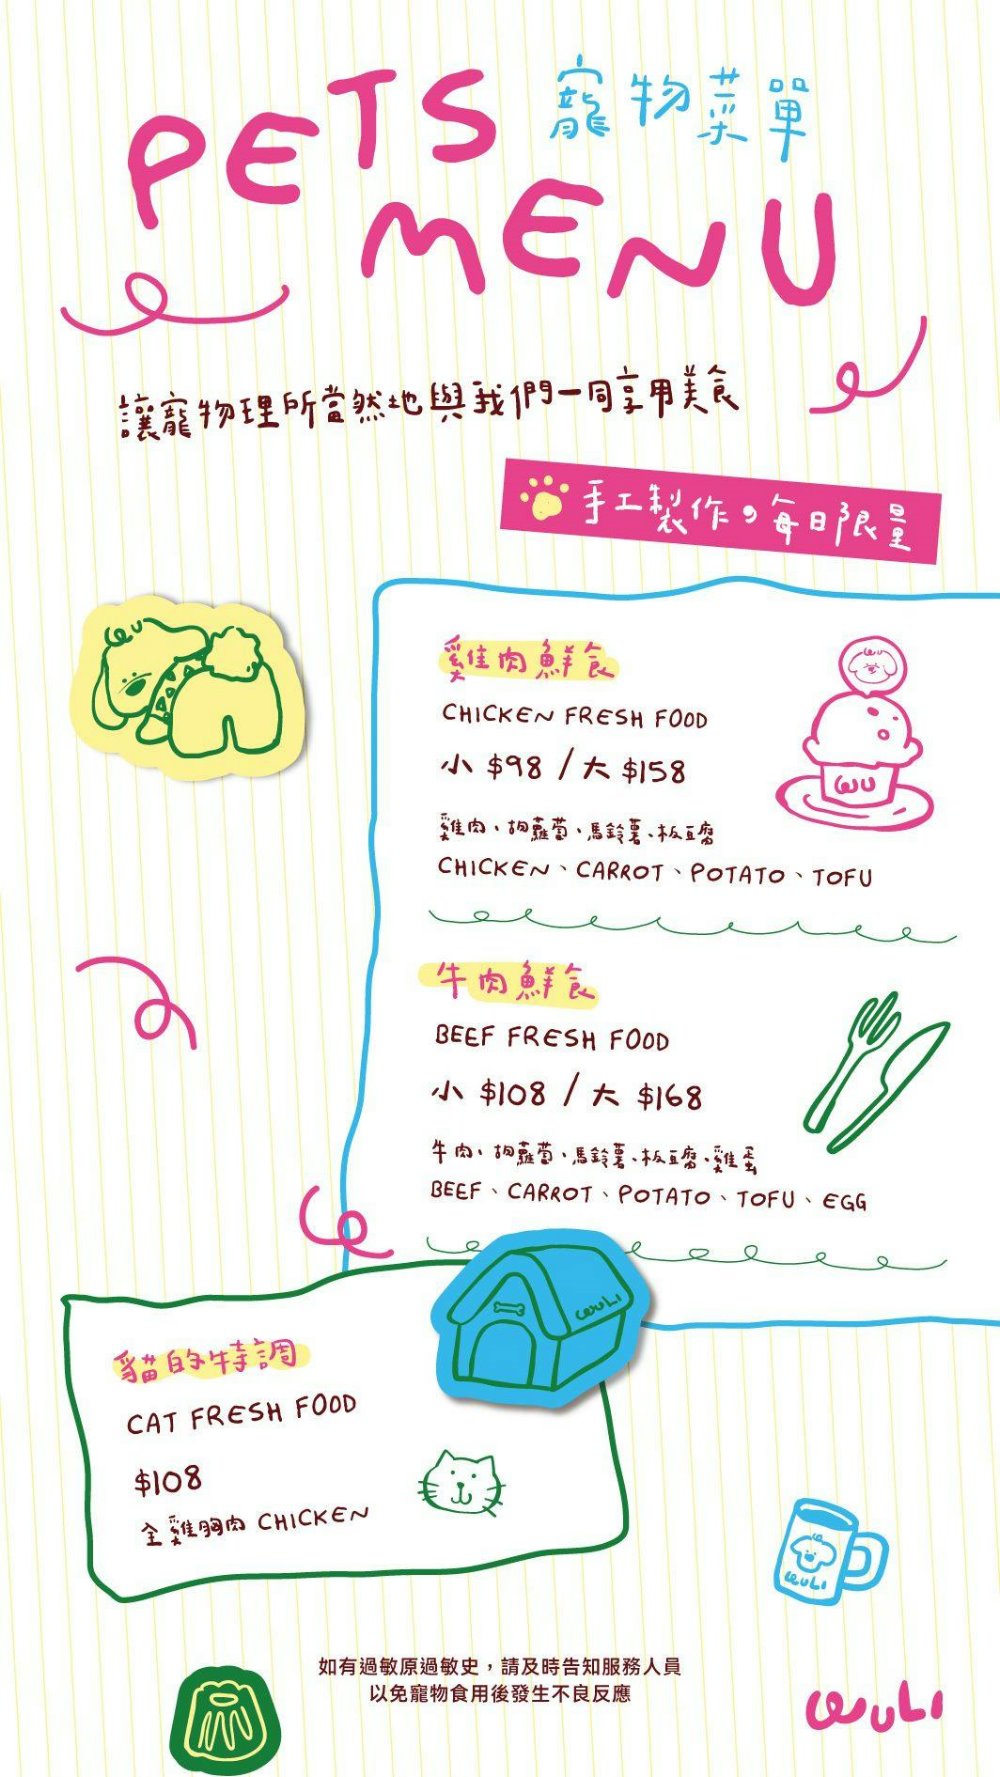 PETS 寵物菜單
MENU
讓寵物理所當然地與我們一同享用美食
手工製作，每日限量
雞肉鮮食
CHICKEN FRESH FOOD
小 $98 / 大 $158
雞肉、胡蘿蔔、馬鈴薯、板豆腐
CHICKEN、CARROT、POTATO、TOFU
WU
牛肉鮮食
BEEF FRESH FOOD
小 $108 / 大 $168
牛肉、胡蘿蔔、馬鈴薯、板豆腐、雞蛋
BEEF、CARROT、POTATO、TOFU、EGG
WULI
貓的特調
CAT FRESH FOOD
$108
全雞胸肉 CHICKEN
WULI
如有過敏原過敏史，請及時告知服務人員
以免寵物食用後發生不良反應
WULI